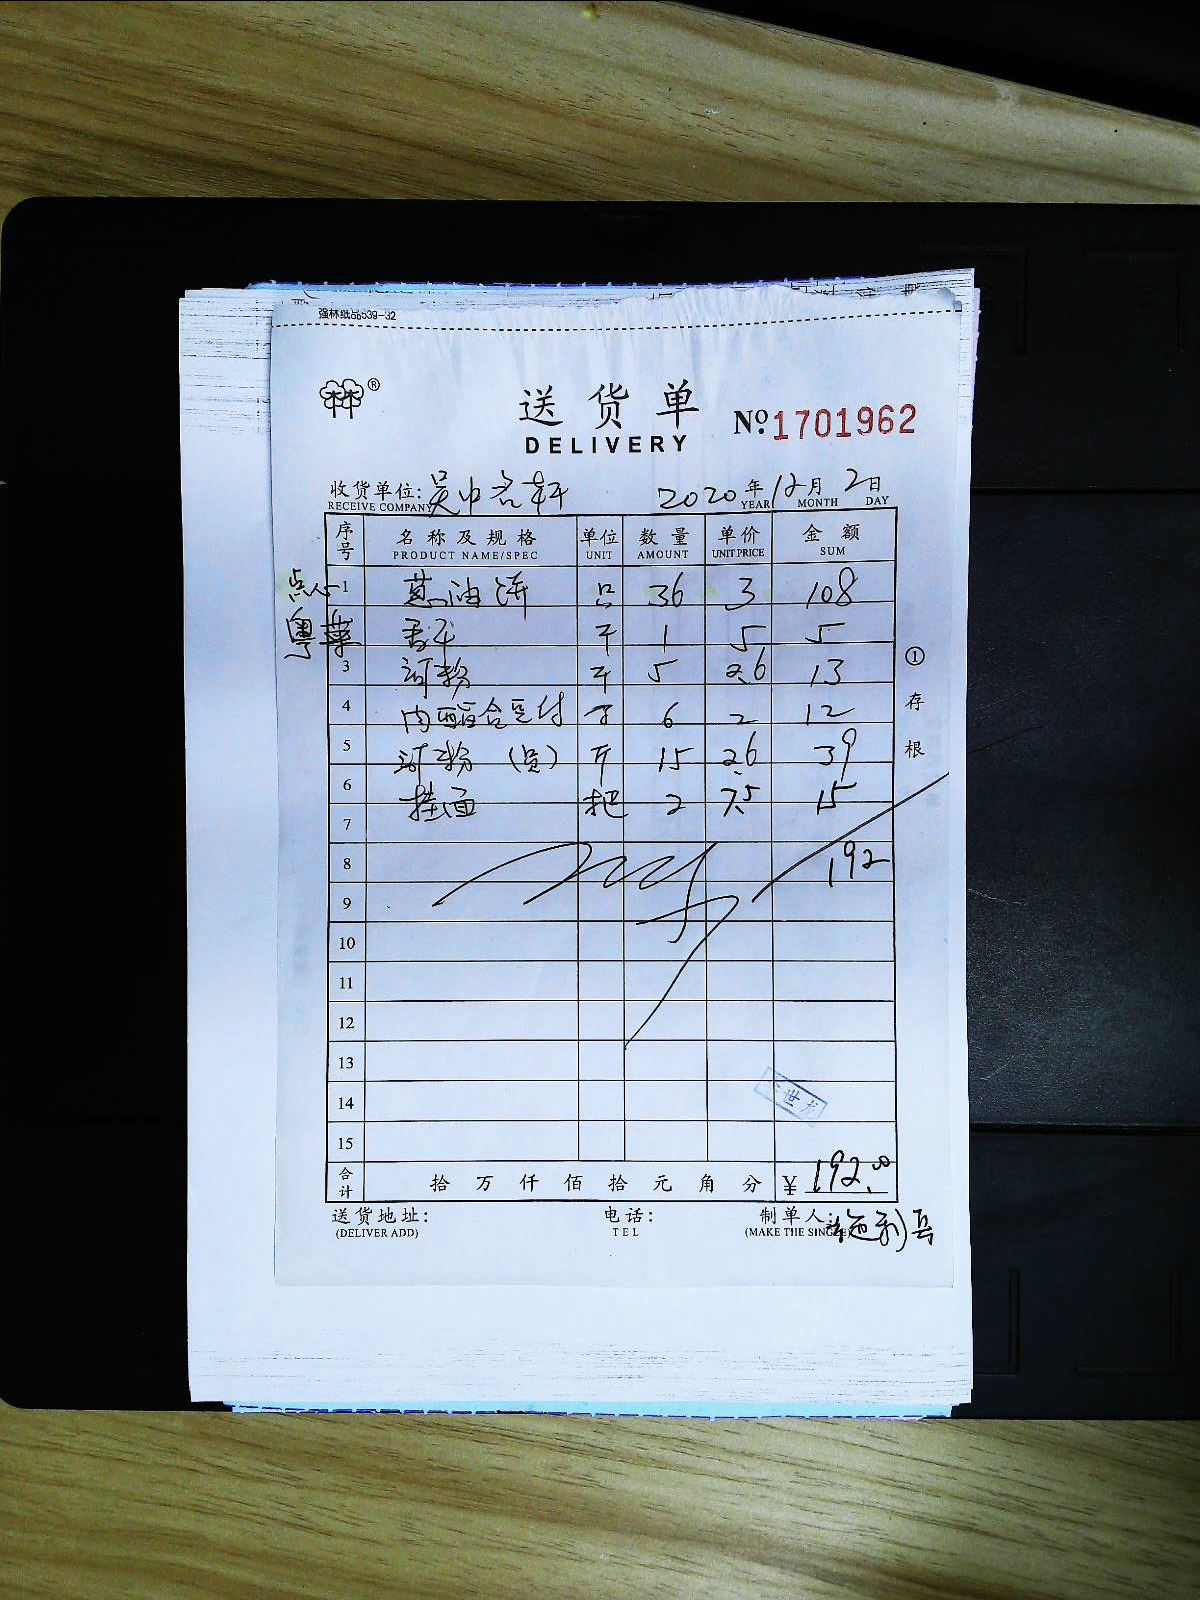 强林纸品539-32
®
送货单 №1701962
DELIVERY
收货单位:吴中名轩 2020年12月2日
RECEIVE COMPANY YEAR MONTH DAY
序号 名称及规格 单位 数量 单价 金额
PRODUCT NAME/SPEC UNIT AMOUNT UNIT PRICE SUM
点心 1 葱油饼 只 36 3 108
粤菜 香干 斤 1 5 5
3 河粉 斤 5 2.6 13
4 内酯合豆付 6 2 12
5 河粉 斤 15 2.6 39
6 挂面 把 2 7.5 15
7
8 192
9
10
11
12
13
14
15
世龙
合计 拾万仟佰拾元角分 ¥192.00
送货地址: 电话: 制单人:
(DELIVER ADD) TEL (MAKE THE SINGLE)
①存根